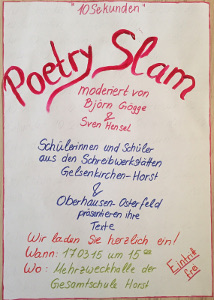 "10 Sekunden"
Poetry Slam
moderiert von
Björn Gögge
&
Sven Hensel
Schülerinnen und Schüler
aus den Schreibwerkstätten
Gelsenkirchen-Horst
&
Oberhausen-Osterfeld
präsentieren ihre
Texte
Wir laden Sie herzlich ein!
Wann: 17.03.15 um 15⁰⁰
Wo: Mehrzweckhalle der
Gesamtschule Horst
Eintritt
frei